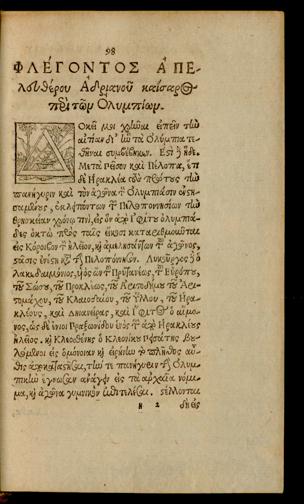 98
ΦΛΕΓΟΝΤΟΣ ΑΠΕ-
λευθέρου Αδριανοῦ καίσαρος
περὶ τῶν Ολυμπίων.
ΔΟΚεῖ μοι χρῆναι εἰπεῖν τὴν
αἰτίαν δι' ἣν τὰ Ολύμπια τε-
θῆναι συμβέβηκεν. Εστὶ ἥδε.
Μετὰ Πεῖσον καὶ Πέλοπα, ἔτι
δὲ Ηρακλέα τοὺς πρώτους τὴν
πανήγυριν καὶ τὸν ἀγῶνα τὸν Ολυμπίασιν ἐνστη-
σαμένους, ἐκλειπόντων τῶν Πελοποννησίων τὴν
θρησκείαν χρόνῳ τινὶ, εἰς ὃν ἀπὸ Ιφίτου ὀλυμπιά-
δες ὀκτὼ πρὸς ταῖς εἴκοσι καταριθμοῦνται
εἰς Κόροιβον τὸν ἠλεῖον, καὶ ἀμελησάντων τοῦ ἀγῶνος,
στάσις ἐνέστη κατὰ τὴν Πελοπόννησον. Λυκοῦργος δὲ ὁ
λακεδαιμόνιος, υἱὸς ὢν τοῦ Πρυτάνεως, τοῦ
τοῦ Σώου, τοῦ Προκλέως, τοῦ Αριστοδήμου τοῦ Αρι-
στομάχου, τοῦ Κλεοδαίου, τοῦ Υλλου, τοῦ Ηρα-
κλέους, καὶ Δηιανείρας, καὶ Ιφιτος ὁ αἵμο-
νος, ὡς δὲ ἔνιοι Πραξωνίδου ἑνὸς τῶν ἀφ' Ηρακλέους
ἠλεῖος, καὶ Κλεοσθένης ὁ Κλεονίκου Πισάτης βου-
λόμενοι εἰς ὁμόνοιαν καὶ εἰρήνην τὸ πλῆθος αὖ-
θις ἀποκαταστῆσαι, τήν τε πανήγυριν τὴν Ολυμ-
πικὴν ἔγνωσαν ἀνάγειν εἰς τὰ ἀρχαῖα νόμι-
μα, καὶ ἀγῶνα γυμνικὸν ἐπιτελέσαι. στέλλονται
N 2 δὴ εἰς